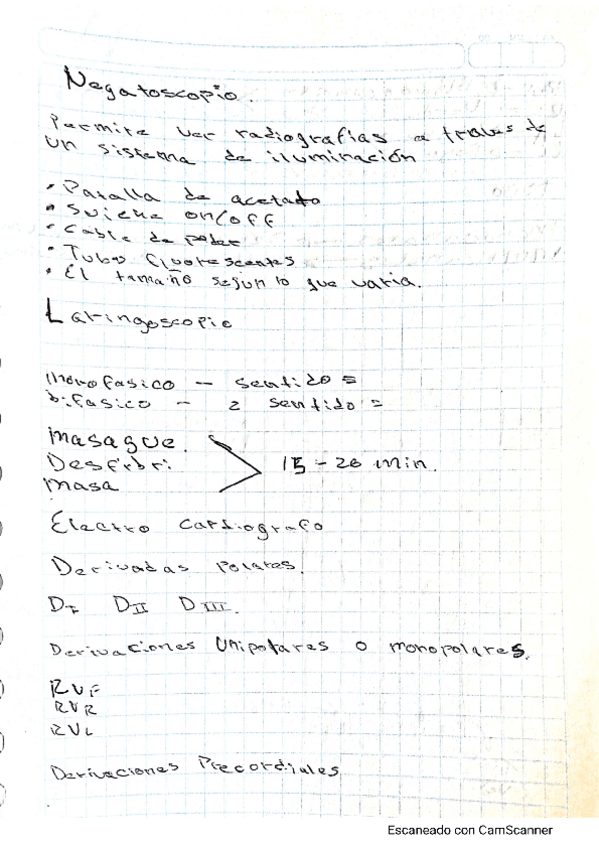 Negatoscopio.
Permite ver radiografias a traves de
un sistema de iluminación
• Patalla de acetato
• Suiche on/off
• Cable de poder
• Tubos fluorescentes
• El tamaño segun lo que varia.
Laringoscopio
monofasico – sentido =
bifasico – 2 sentido =
masague.
Desfibri
masa
15 – 20 min.
Electro cardiografo
Derivadas polares.
DI DII DIII.
Derivaciones Unipolares o monopolares.
RVF
RVR
RVL
Derivaciones Precordiales
Escaneado con CamScanner